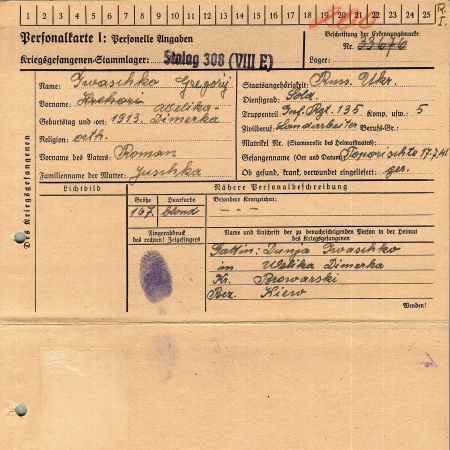 1 2 3 4 5 6 7 8 9 10 11 12 13 14 15 16 17 18 19 20 21 22 23 24 25
Personalkarte I: Personelle Angaben
Beschriftung der Erkennungsmarke
Kriegsgefangenen-Stammlager: Stalag 308 (VIII E)
Nr. 33676
Lager:
Des Kriegsgefangenen
Name: Iwaschko Gregorij
Staatsangehörigkeit: Russ. Ukr.
Vorname: Hrehori
Dienstgrad: Sold.
Welika-
Truppenteil: Inf. Rgt. 135 Komp. usw.: 5
Geburtstag und -ort: 1913. Dimerka
Zivilberuf: Landarbeiter Berufs-Gr.:
Religion: orth.
Matrikel Nr. (Stammrolle des Heimatstaates):
Vorname des Vaters: Roman
Gefangennahme (Ort und Datum): Toporischte 17.7.41
Familienname der Mutter: Juschka
Ob gesund, krank, verwundet eingeliefert: ges.
Lichtbild
Nähere Personalbeschreibung
Größe Haarfarbe Besondere Kennzeichen:
167. blond - - -
Fingerabdruck
des rechten! Zeigefingers
Name und Anschrift der zu benachrichtigenden Person in der Heimat
des Kriegsgefangenen
Gattin: Dunja Iwaschko
in Welika Dimerka
Kr. Browarski
Bez. Kiew
Wenden!